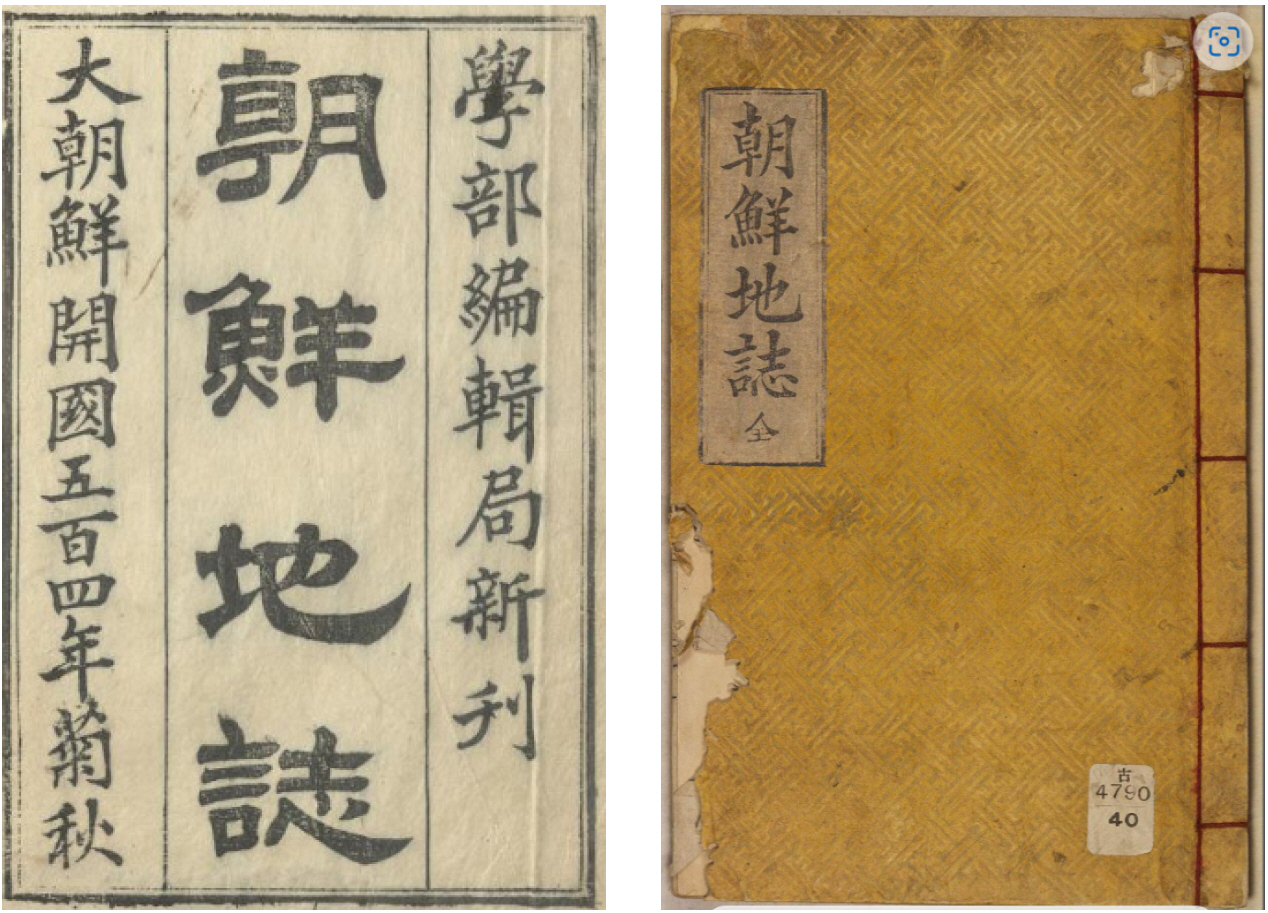 學部編輯局新刊
朝鮮地誌
大朝鮮開國五百四年菊秋
朝鮮地誌 全
古
4790
40